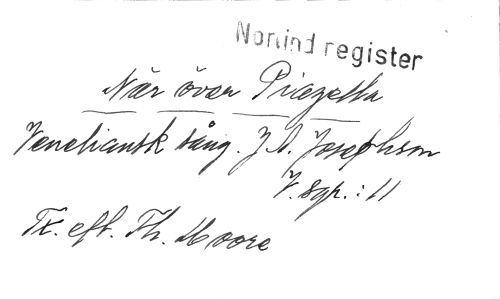 Norlind register
När över Piazetta
Venetiansk sång. J. A. Josephson
V. Sgr. : 11
Tx. eft. Th. Moore